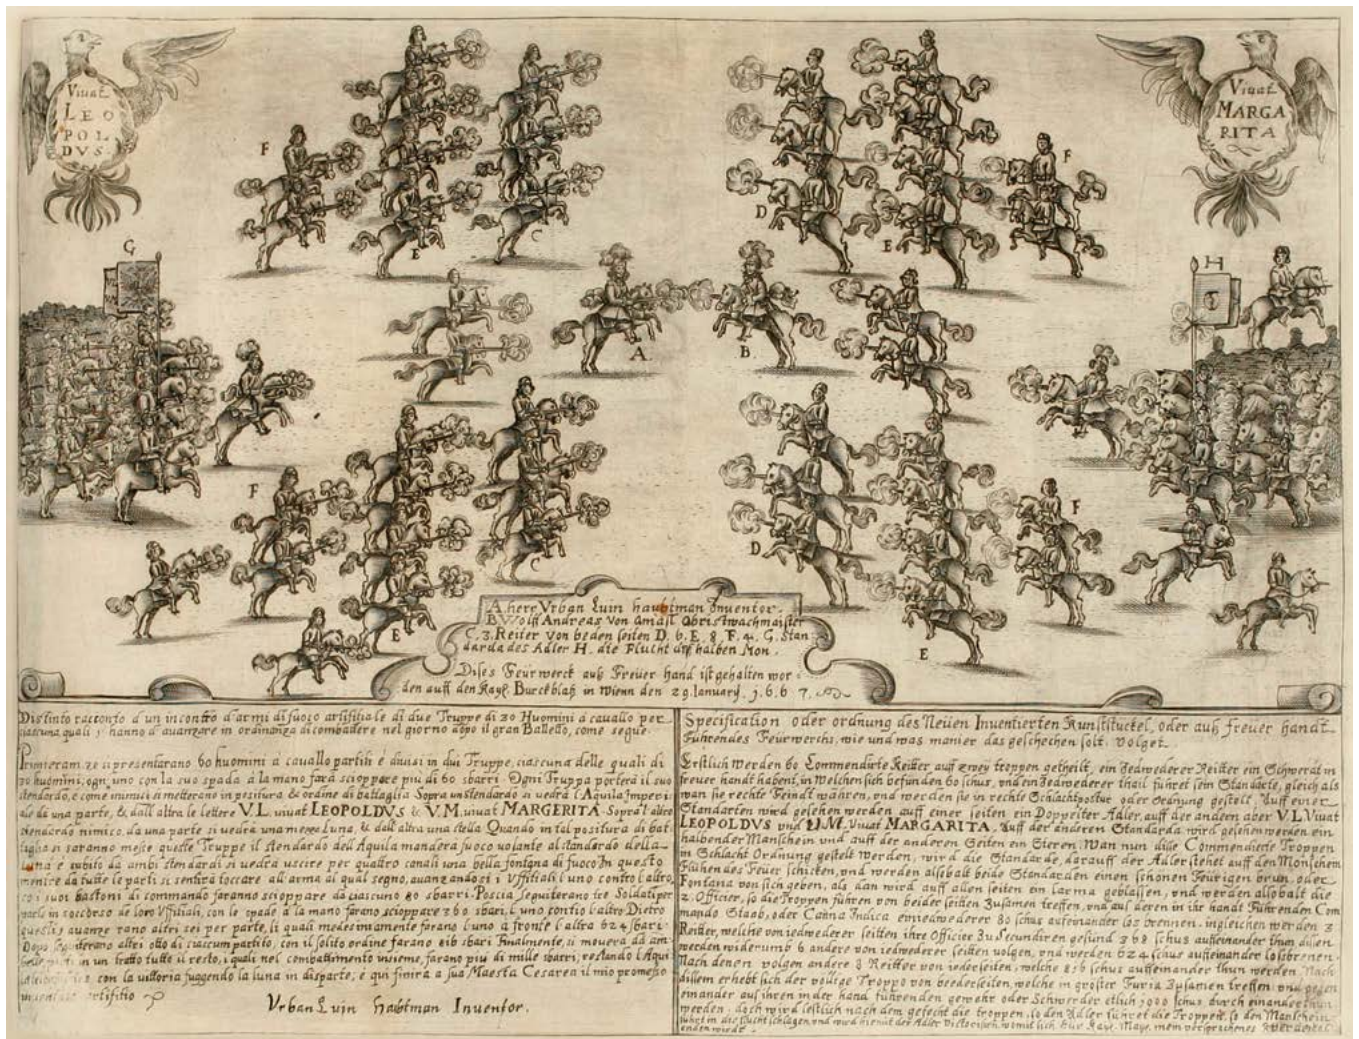 Vivat
LEO
POL
DVS.
Vivat
MARGA
RITA
F
E
C
D
E
F
G
H
A.
B.
F
E
C
D
E
F
A. herr Vrban Luin haubtman Inventor.
B. Wolff Andreas Von Obristwachmaister
C. 3. Reiter Von beden seiten D. 6. E. 8. F. 4. G. Stan
darda des Adler H. die Flucht des halben Mon.
Dises Feurwerck auß Freüer hand ist gehalten wor
den auff den Kayl. Burckblatz in Wienn den 29. January. 1. 6. 6 7.
Distinto racconto d'un incontro d'armi di fuoco artifitiale di due Truppe di 30 Huomini a cavallo per
ciascuna quali s'hanno d'avanzare in ordinanza di combattere nel giorno dopo il gran Balletto, come segue.
si presentarano 60 huomini a cavallo partiti è divisi in dui Truppe, ciascuna delle quali di
30 huomini, ogn'uno con la suo spada à la mano fara scioppare più di 60 sbarri. Ogni Truppa porterà il suo
stendardo, e come inimici si metterano in positura & ordine di battaglia Sopra un stendardo si vedrà l'Aquila Imperi
ale da una parte, & dall'altra le lettere V. L. vivat LEOPOLDVS & V. M. vivat MARGERITA. Sopra l'altro
stendardo nimico, da una parte si vedrà una mezza Luna, & dall'altra una stella Quando in tal positura di bat
taglia si saranno messe queste Truppe il stendardo dell'Aquila manderà fuoco volante al stendardo della
Luna è subito da ambi stendardi si vedrà uscire per quattro canali una bella fontana di fuoco In questo
da tutte le parti si sentirà toccare all'arma al qual segno, avanzandosi i Vffitiali l'uno contro l'altro,
co i suoi bastoni di commando faranno scioppare da ciascuno 80 sbarri. Poscia seguiterano tre Soldati per
parte in soccorso de loro Vffitiali, con le spade à la mano farano scioppare 360 sbari, l'uno contro l'altro Dietro
questi, avanzerano altri sei per parte, li quali medesimamente farano l'uno à fronte l'altra 624 sbari.
Dopo seguiterano altri otto di ciascun partito, con il solito ordine farano 816 sbari Finalmente, si moverà da am
be le parti in un tratto tutto il resto, i quali nel combattimento insieme, farano più di mille sbarri, restando l'Aqui
la con la vittoria fuggendo la luna in disparte, è qui finirà a sua Maesta Cesarea il mio promesso
artifitio
Vrban Luin Haubtman Inventor.
Specification oder ordnung des Neüen Inventierten Kunststuckel, oder auß freuer handt
Führendes Feürwerchs, wie und was manier das geschechen solt, volget.
Erstlich Werden 60 Commendirte Reitter auff zwey troppen getheilt, ein Jedwederer Reitter ein Schwerdt in
freuer handt habent, in Welchen sich befünden 60 schus, und ein Jedwederer thail führet sein Standarte, gleich als
wan sie rechte Feindt währen, und werden sie in rechte Schlachtpostur oder ordnung gestelt, Auff einer
Standarten wird gesehen werden auff einer seiten ein Doppelter Adler, auff der andern aber V. L. Vivat
LEOPOLDVS und V. M. Vivat MARGARITA. Auff der anderen Standarda wird gesehen werden ein
halbender Manschein und auff der anderen Seiten ein Steren. Wan nun dise Commendierte Troppen
in Schlacht Ordnung gestelt werden, wird die Standarde, darauff der Adler stehet auff den Monschein
Flühendes Feuer schicken, und werden alsobalt beide Standarden einen schönen Feürigen brun, oder
Fontana von sich geben, als dan wird auff allen seiten ein Larma geblassen, und werden allsobalt die
2. Officier, so die Troppen führen von beider seithen Zusamen treffen, und auf deren in ihr handt Führenden Com
mando Staab, oder Canna Indica ein iedwederer 80 schus aufeinander los brennen, ingleichen werden 3
Reitter, welche von iedwederer seitten ihre Officier Zu secundiren gesünd 368 schus auffeinander thun disen
werden widerumb 6 andere von iedwederer seitten volgen, und werden 624 schus auffeinander losbrenen.
Nach denen volgen andere 8 Reitter von ieder seiten, welche 816 schus auffeinander thun werden. Nach
disem erhebt sich der völlige Troppo von beeder seiten, welche in groster Furia Zusamen treffen und gegen
einander auf ihren in der hand führenden gewehr oder Schwerder etlich 1000 schus durch einander thun
werden, doch wird lestlich nach dem gefecht die troppen, so den Adler führet die Troppen, so den Manschein
führt in die flucht schlagen, und wird hiemit der Adler Victorisiren, womit sich Ihr Kayl. Mayt. mein versprochenes